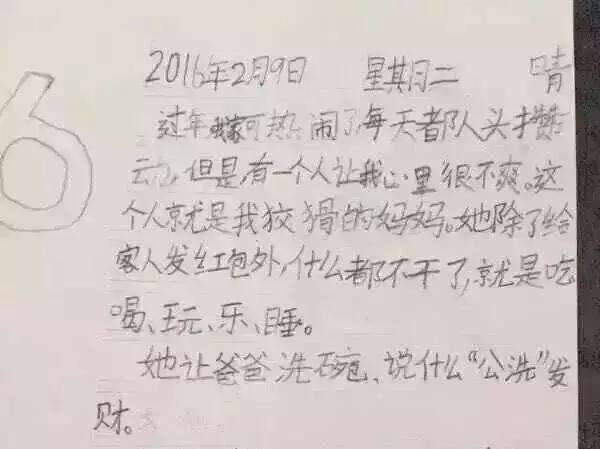 6
2016年2月9日 星期二 晴
过年我家可热闹了,每天都队头扌赞
动,但是,有一个人让我心里很不爽。这
个人就是我狡猾的妈妈。她除了给
客人发红包外,什么都不干了,就是吃
喝、玩、乐、睡。
她让爸爸洗碗、说什么“公洗”发
财。